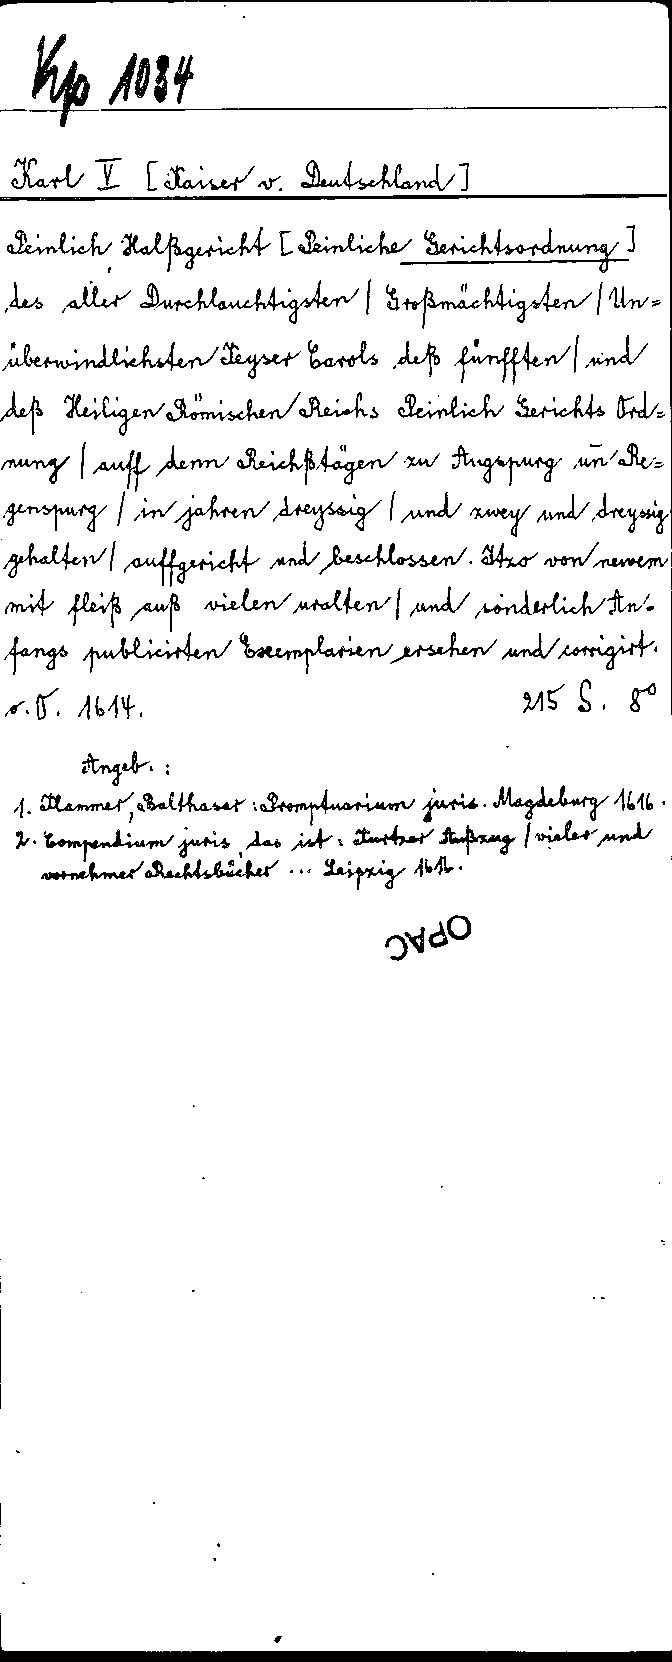 Kp 1034
Karl V [Kaiser v. Deutschland]
Peinlich Halßgericht [Peinliche Gerichtsordnung]
des aller Durchlauchtigsten / Großmächtigsten / Un=
überwindlichsten Keyser Carols deß fünfften / und
deß Heiligen Römischen Reichs Peinlich Gerichts Ord=
nung / auff denn Reichßtägen zu Augspurg un̄ Re=
genspurg / in jahren dreyssig / und zwey und dreyssig
gehalten / auffgericht und beschlossen. Itzo von newem
mit fleiß auß vielen uralten / und sonderlich An=
fangs publicirten Exemplarien ersehen und corrigirt.
o.O. 1614. 215 S. 8°
Angeb. :
1. Klammer, Balthasar : Promptuarium juris. Magdeburg 1616.
2. Compendium juris, das ist : Kurtzer Außzug / vieler und
vornehmer Rechtsbücher ... Leipzig 1616.
OPAC